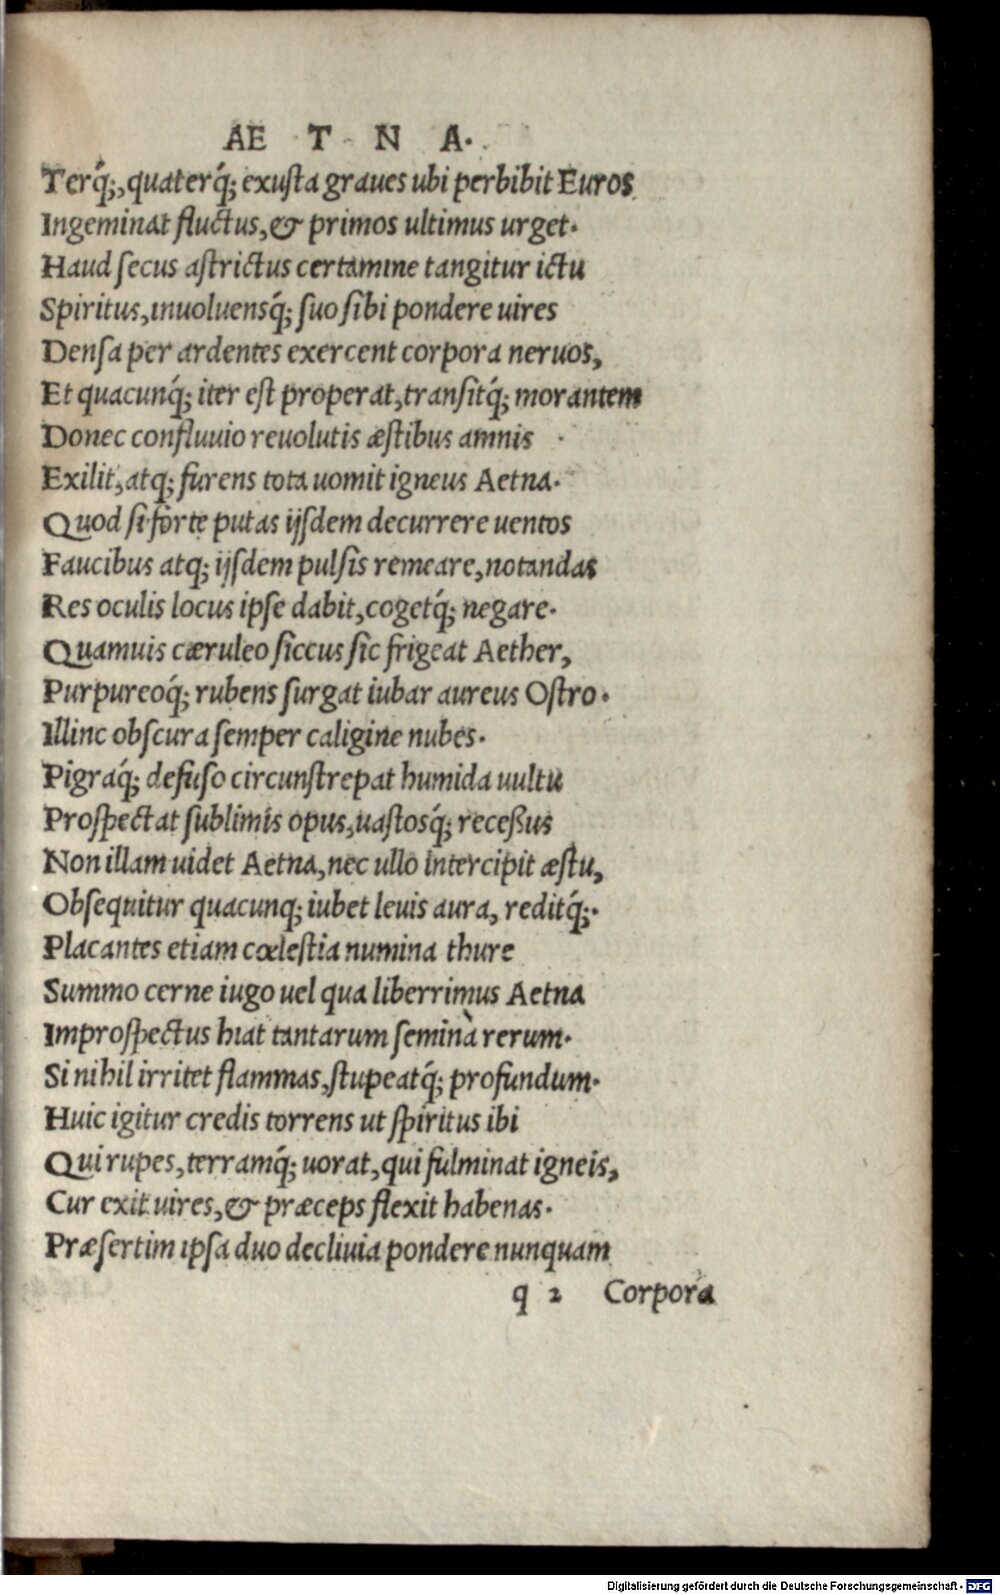 AE T N A.
Terq́;, quaterq́; exusta graues ubi perbibit Euros
Ingeminat fluctus, & primos ultimus urget.
Haud ſecus aſtrictus certamine tangitur ictu
Spiritus, inuoluensq́; ſuo ſibi pondere uires
Denſa per ardentes exercent corpora neruos,
Et quacunq́; iter eſt properat, tranſitq́; morantem
Donec confluuio reuolutis æſtibus amnis
Exilit, atq; furens tota uomit igneus Aetna.
Quod ſi forte putas ijſdem decurrere uentos
Faucibus atq; ijſdem pulſis remeare, notandas
Res oculis locus ipſe dabit, cogetq́; negare.
Quamuis cæruleo ſiccus ſic frigeat Aether,
Purpureoq́; rubens ſurgat iubar aureus Oſtro.
Illinc obſcura ſemper caligine nubes.
Pigraq́; defuſo circunſtrepat humida uultu
Proſpectat ſublimis opus, uaſtosq́; receßus
Non illam uidet Aetna, nec ullo intercipit æſtu,
Obſequitur quacunq; iubet leuis aura, reditq́;.
Placantes etiam cœleſtia numina thure
Summo cerne iugo uel qua liberrimus Aetna
Improſpectus hiat tantarum ſeminà rerum.
Si nihil irritet flammas, ſtupeatq́; profundum.
Huic igitur credis torrens ut ſpiritus ibi
Qui rupes, terramq́; uorat, qui fulminat igneis,
Cur exit uires, & præceps flexit habenas.
Præſertim ipſa duo decliuia pondere nunquam
q 2 Corpora
Digitalisierung gefördert durch die Deutsche Forschungsgemeinschaft - DFG